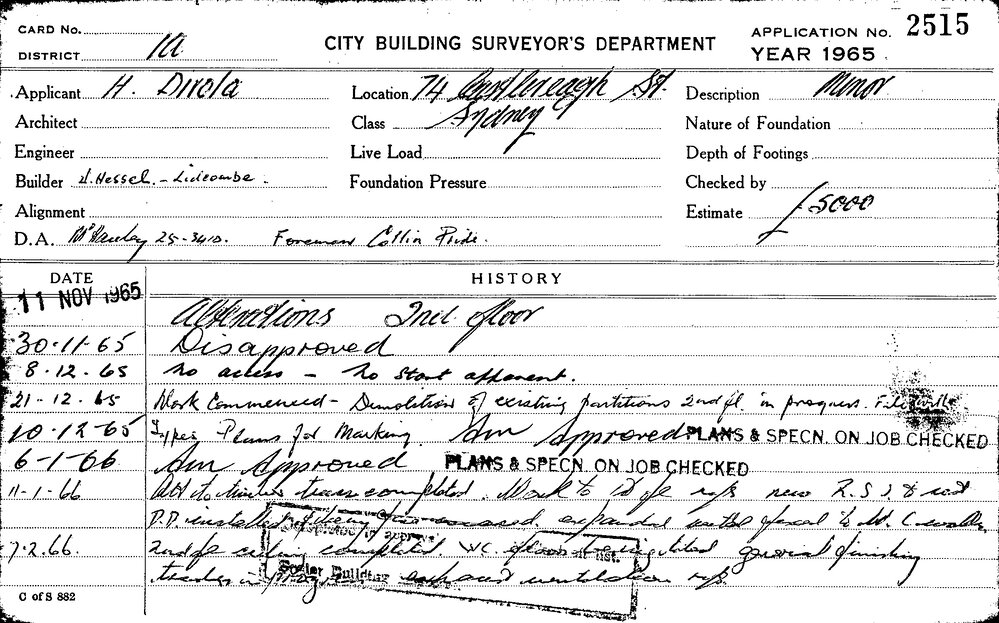 CARD No.
APPLICATION No. 2515
DISTRICT 1a
CITY BUILDING SURVEYOR'S DEPARTMENT
YEAR 1965
Applicant H. Dirola Location 74 Castlereagh St. Description Minor
Architect Class Sydney Nature of Foundation
Engineer Live Load Depth of Footings
Builder Hessel. - Lidcombe. Foundation Pressure Checked by
Alignment Estimate £5000
D.A. 25-3410. Foreman Collin Pride.
DATE HISTORY
11 NOV 1965
Alterations 2nd floor
30.11.65 Disapproved
8.12.65 No access - No start apparent.
21-12.65 Work Commenced - Demolition of existing partitions 2nd fl. in progress.
10.12-65 Plans for Marking. Am Approved PLANS & SPECN. ON JOB CHECKED
6-1-66 Am Approved PLANS & SPECN. ON JOB CHECKED
11-1.66 to timber completed. Work to new R.S.J. &
P.D. installed expanded metal
7.2.66. 2nd fl ceiling completed. W.C. floors general finishing
trades in exhaust ventilation
Building
C of S 882